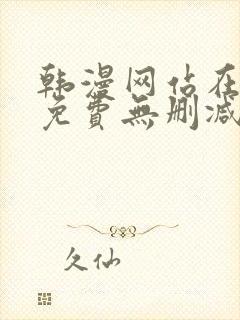 韩漫网站在
免費無删减
久仙